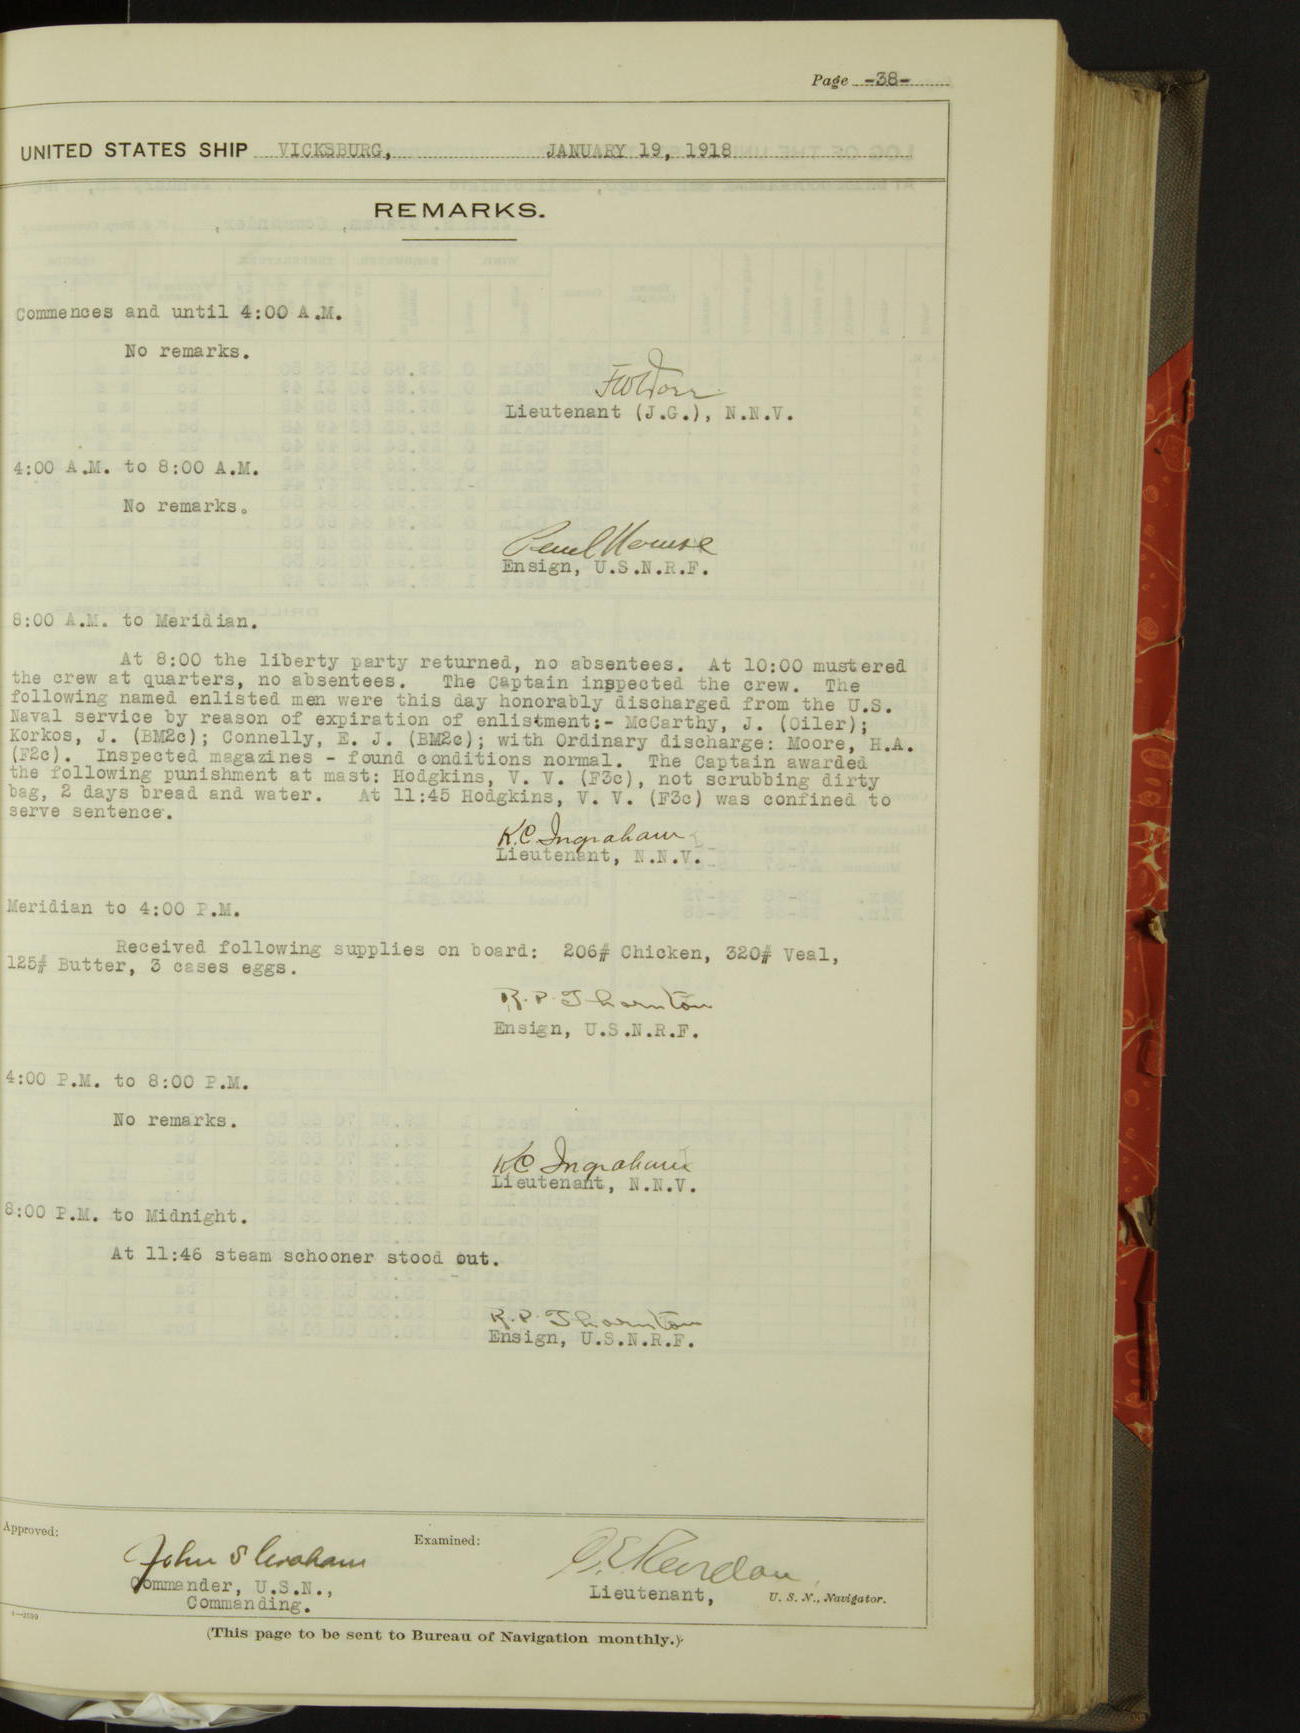 Page -38-
UNITED STATES SHIP VICKSBURG, JANUARY 19, 1918
REMARKS.
Commences and until 4:00 A.M.
No remarks.
Lieutenant (J.G.), N.N.V.
4:00 A.M. to 8:00 A.M.
No remarks.
Ensign, U.S.N.R.F.
8:00 A.M. to Meridian.
At 8:00 the liberty party returned, no absentees. At 10:00 mustered
the crew at quarters, no absentees. The Captain inspected the crew. The
following named enlisted men were this day honorably discharged from the U.S.
Naval service by reason of expiration of enlistment:- McCarthy, J. (Oiler);
Korkos, J. (BM2c); Connelly, E. J. (BM2c); with Ordinary discharge: Moore, H.A.
(F2c). Inspected magazines - found conditions normal. The Captain awarded
the following punishment at mast: Hodgkins, V. V. (F3c), not scrubbing dirty
bag, 2 days bread and water. At 11:45 Hodgkins, V. V. (F3c) was confined to
serve sentence.
K.C. Ingraham
Lieutenant, N.N.V.
Meridian to 4:00 P.M.
Received following supplies on board: 206# Chicken, 320# Veal,
125# Butter, 3 cases eggs.
R. P. Thornton
Ensign, U.S.N.R.F.
4:00 P.M. to 8:00 P.M.
No remarks.
K.C. Ingraham
Lieutenant, N.N.V.
8:00 P.M. to Midnight.
At 11:46 steam schooner stood out.
R. P. Thornton
Ensign, U.S.N.R.F.
Approved: Examined:
John S Graham
Commander, U.S.N., Lieutenant, U. S. N., Navigator.
Commanding.
(This page to be sent to Bureau of Navigation monthly.)